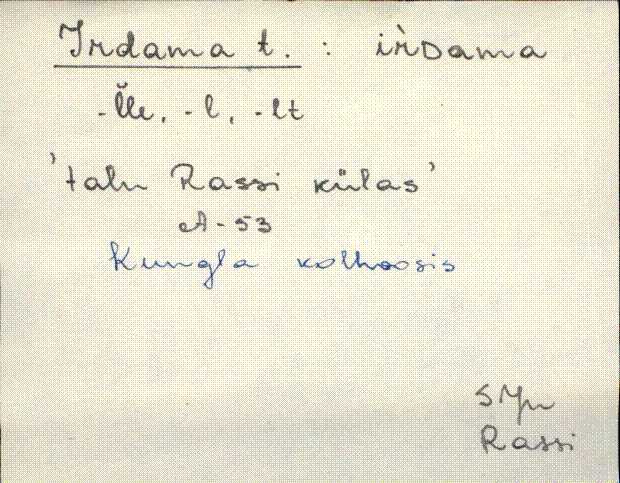 Irdama t. : ìrᴅama
-l̆le, -l, -lt
'talu Rassi külas'
A-53
Kungla kolhoosis
SJn
Rassi